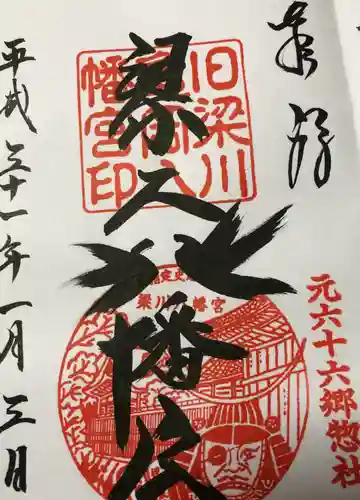 奉拝
元六十六郷惣社
旧梁川
亀岡八
幡宮印
梁 八幡
梁川八幡宮
平成三十一年一月三日